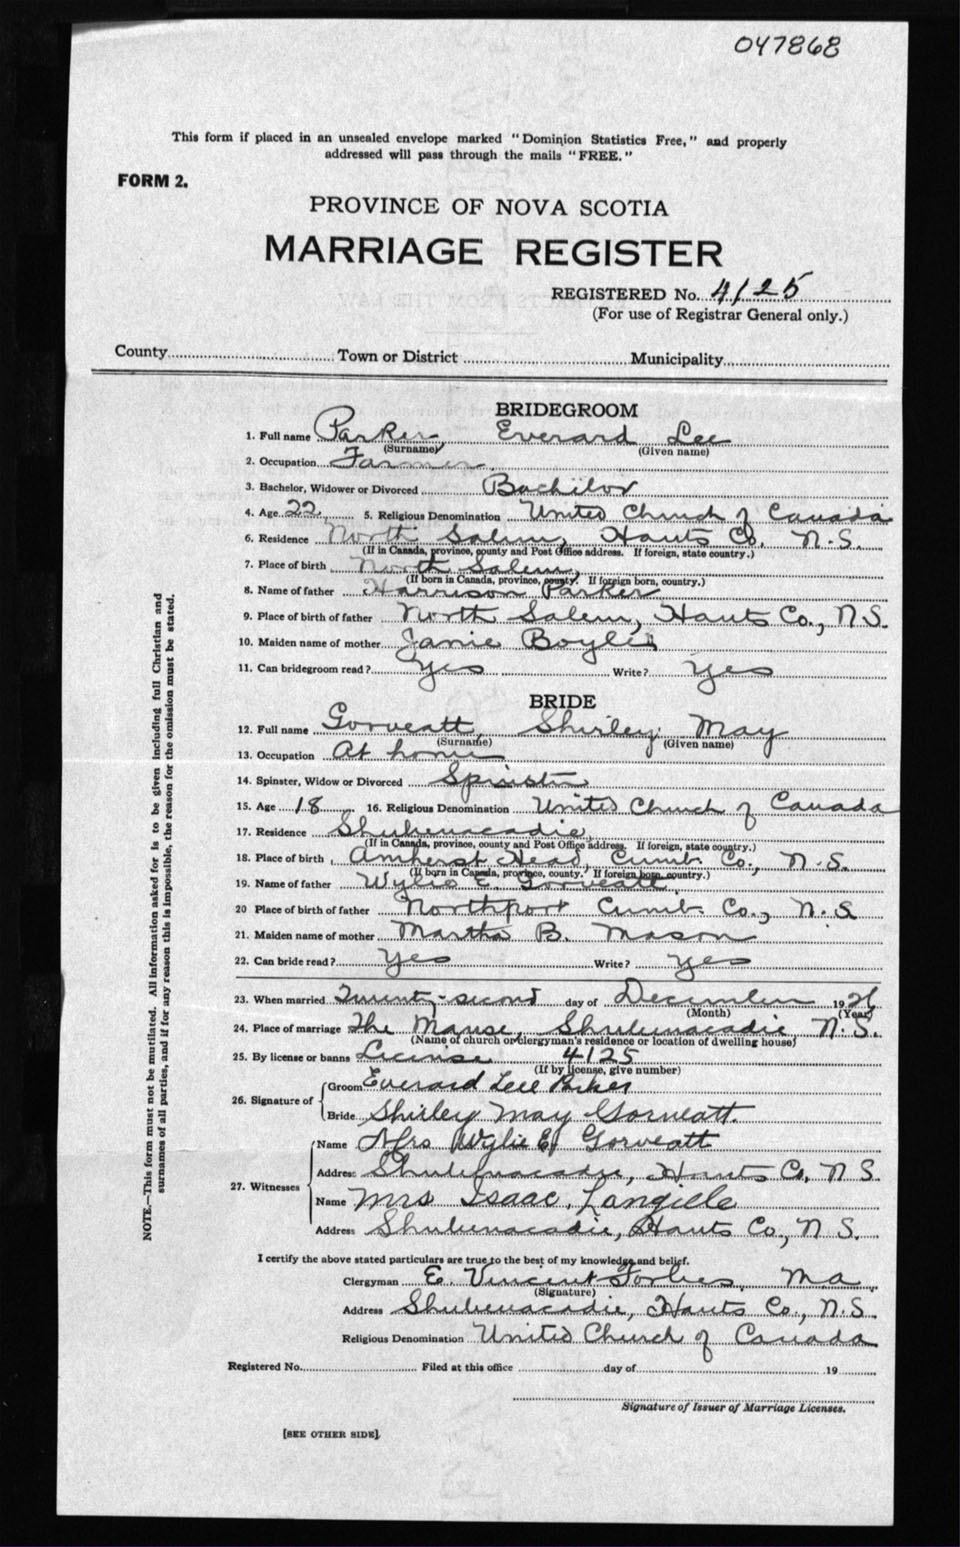 047868
This form if placed in an unsealed envelope marked "Dominion Statistics Free," and properly
addressed will pass through the mails "FREE."
FORM 2.
PROVINCE OF NOVA SCOTIA
MARRIAGE REGISTER
REGISTERED No. 4125
(For use of Registrar General only.)
County Town or District Municipality
BRIDEGROOM
1. Full name Parker, Everard Lee
(Surname) (Given name)
2. Occupation Farmer
3. Bachelor, Widower or Divorced Bachilor
4. Age 22 5. Religious Denomination United Church of Canada
6. Residence North Salem, Hants Co. N.S.
(If in Canada, province, county and Post Office address. If foreign, state country.)
7. Place of birth North Salem,
(If born in Canada, province, county. If foreign born, country.)
8. Name of father Harrison Parker
9. Place of birth of father North Salem, Hants Co., N.S.
10. Maiden name of mother Janie
11. Can bridegroom read? Yes Write? Yes
BRIDE
12. Full name Gorveatt, Shirley May
(Surname) (Given name)
13. Occupation At home
14. Spinster, Widow or Divorced Spinster
15. Age 18 16. Religious Denomination United Church of Canada
17. Residence Shubenacadie,
(If in Canada, province, county and Post Office address. If foreign, state country.)
18. Place of birth Amherst Head, Cumb. Co., N.S.
(If born in Canada, province, county. If foreign born, country.)
19. Name of father Wylie E. Gorveatt
20 Place of birth of father Northport Cumb. Co., N.S
21. Maiden name of mother Martha B. Mason
22. Can bride read? Yes Write? Yes
23. When married Twenty-second day of December 19
(Month) (Year)
24. Place of marriage The Manse, Shubenacadie N.S.
(Name of church or clergyman's residence or location of dwelling house)
25. By license or banns License 4125
(If by license, give number)
26. Signature of
Groom Everard Lee Parker
Bride Shirley May Gorveatt.
27. Witnesses
Name Mrs Wylie E. Gorveatt
Address Shubenacadie, Hants Co, N S.
Name Mrs Isaac Langille
Address Shubenacadie, Hants Co., N.S.
I certify the above stated particulars are true to the best of my knowledge and belief.
Clergyman E. Vincent Forbes, MA
(Signature)
Address Shubenacadie, Hants Co., N.S.
Religious Denomination United Church of Canada
Registered No. Filed at this office day of 19
Signature of Issuer of Marriage Licenses.
[SEE OTHER SIDE].
NOTE.—This form must not be mutilated. All information asked for is to be given including full Christian and
surnames of all parties, and if for any reason this is impossible, the reason for the omission must be stated.